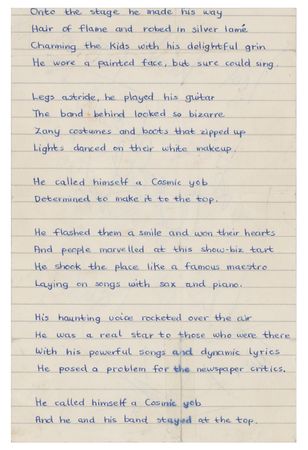 Onto the stage he made his way
Hair of flame and robed in silver lamé
Charming the Kids with his delightful grin
He wore a painted face, but sure could sing.
Legs astride, he played his guitar
The band behind looked so bizarre
Zany costumes and boots that zipped up
Lights danced on their white makeup.
He called himself a Cosmic yob
Determined to make it to the top.
He flashed them a smile and won their hearts
And people marvelled at this show-biz tart
He shook the place like a famous maestro
Laying on songs with sax and piano.
His haunting voice rocketed over the air
He was a real star to those who were there
With his powerful songs and dynamic lyrics
He posed a problem for the newspaper critics.
He called himself a Cosmic yob
And he and his band stayed at the top.